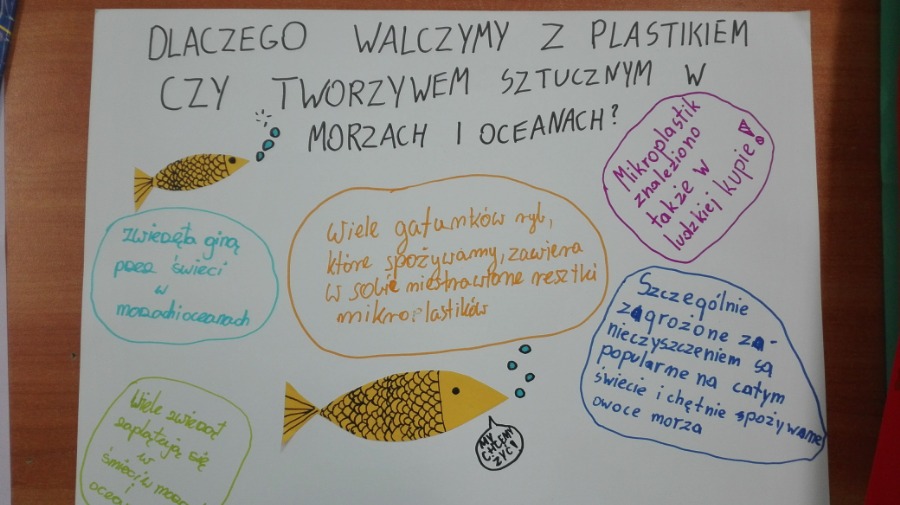 DLACZEGO WALCZYMY Z PLASTIKIEM
CZY TWORZYWEM SZTUCZNYM W
MORZACH I OCEANACH?
Mikroplastik
znaleziono
także w
ludzkiej kupie!
zwierzęta giną
przez świeci
w
morzach i oceanach
Wiele gatunków ryb,
które spożywamy, zawiera
w sobie niestrawione resztki
mikroplastików
Szczególnie
zagrożone za-
nieczyszczeniem są
popularne na całym
świecie i chętnie spożywane
owoce morza
Wiele zwierząt
zaplątują się
w
śmieci w
i
MY
CHCEMY
ŻYĆ!